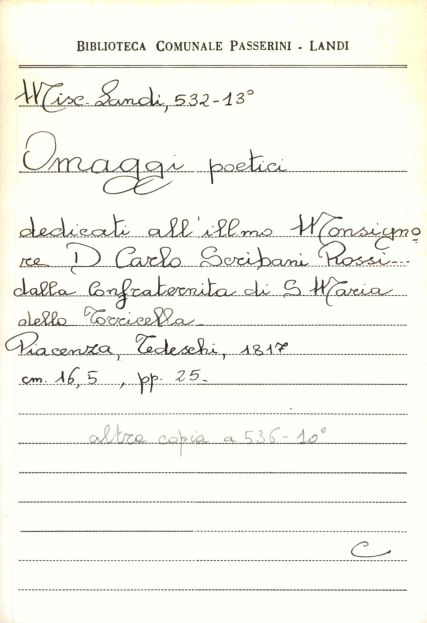 BIBLIOTECA COMUNALE PASSERINI - LANDI
Misc. Landi, 532-13°
Omaggi poetici
dedicati all'illmo Monsigno
re D Carlo Scribani Rossi...
dalla Confraternita di S Maria
dello Torricella
Piacenza, Tedeschi, 1817
cm. 16,5 , pp. 25.
altra copia a 536-10°
C